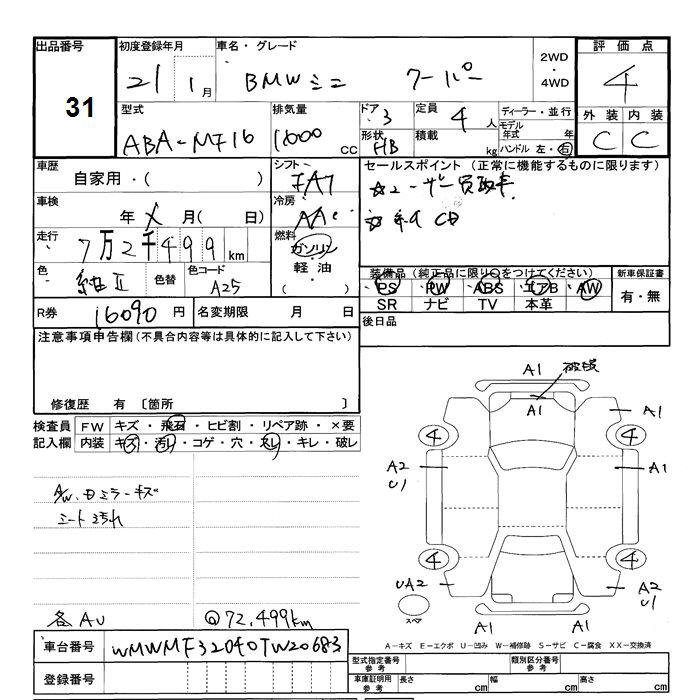 出品番号 初度登録年月 車名・グレード 2WD・4WD 評価点
31 21 1月 BMWミニ クーパー 4
型式 排気量 ドア 定員 ディーラー・並行 外装 内装
ABA-MF16 1600cc 3 4人 モデル年式 年 C C
形状 HB 積載 kg ハンドル 左・右
車歴 シフト セールスポイント(正常に機能するものに限ります)
自家用・( ) FA7 ☆ユーザー買取車
車検 年 月( 日) 冷房 AAC
☆ CD
走行 7万2千499km 燃料 ガソリン
軽油
( )
色 色替 色コード A25
装備品(純正品に限り○をつけてください) 新車保証書
PS PW ABS エアB AW 有・無
SR ナビ TV 本革
R券 16090円 名変期限 月 日 後日品
注意事項申告欄(不具合内容等は具体的に記入して下さい)
修復歴 有 〔箇所 〕
検査員 FW キズ・飛石・ヒビ割・リペア跡・×要
記入欄 内装 キズ・汚れ・コゲ・穴・スレ・キレ・破レ
A/W・ミラーキズ
シート汚れ
各AU @72,499km
A1
A1
A1
4 4
A2 U1 A1
4 4
UA2 A2 U1
スペア
A1 A1
A-キズ E-エクボ U-凹み W-補修跡 S-サビ C-腐食 XX-交換済
車台番号 WMWMF32040TW20683
登録番号
型式指定番号 参考 類別区分番号 参考
車庫証明用 参考 長さ cm 幅 cm 高さ cm